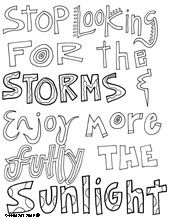 STOP LOOKING
FOR the
STORMS &
ENJOY MORE
fully THE
SUNLIGHT